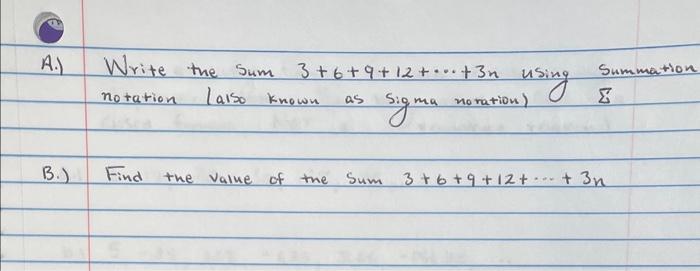 A.) Write the Sum 3+6+9+12+···+3n using Summation
notation (also known as Sigma notation) Σ
B.) Find the value of the Sum 3+6+9+12+···+3n